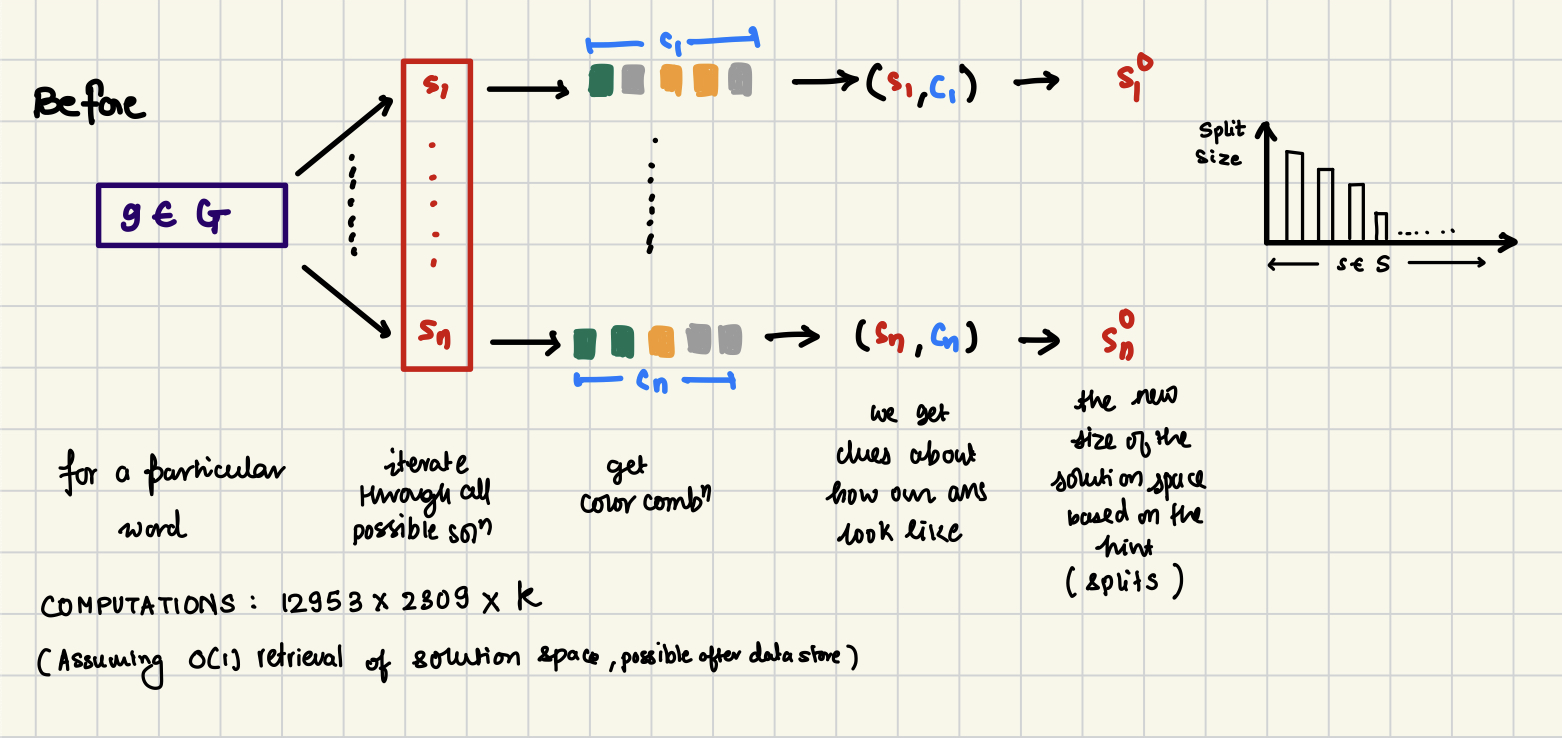 Before
g ∈ G
s₁
sₙ
c₁
(s₁, c₁)
s₁⁰
cₙ
(sₙ, cₙ)
sₙ⁰
split
size
s ∈ S
for a particular
word
iterate
through all
possible solⁿ
get
color combⁿ
we get
clues about
how our ans
look like
the new
size of the
solution space
based on the
hint
(splits)
COMPUTATIONS : 12953 x 2309 x K
(Assuming O(1) retrieval of solution space, possible after data store)